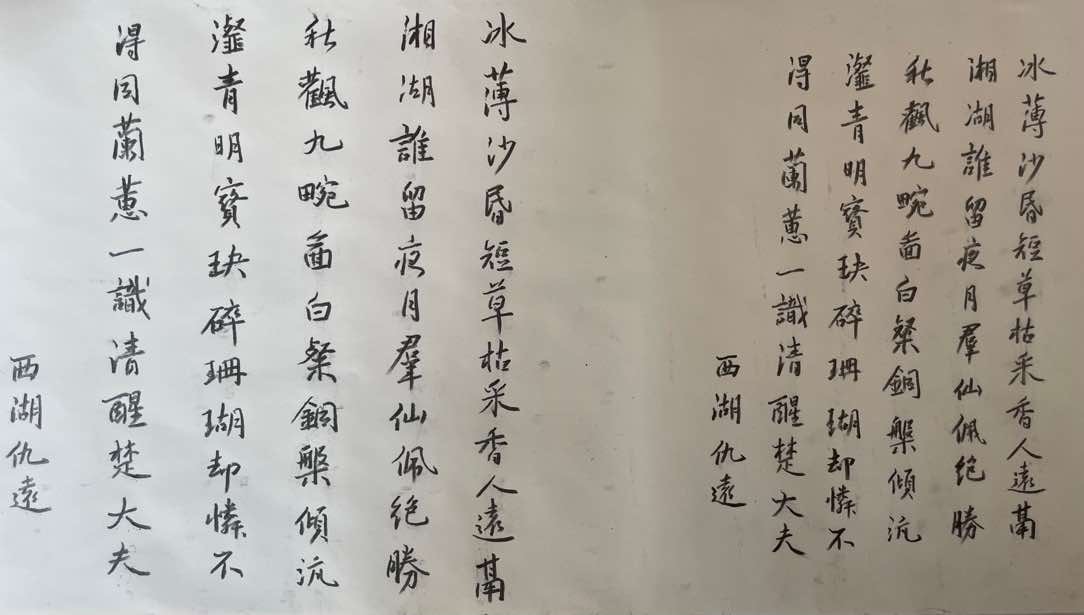 冰薄沙昏短草枯采香人遠鬲
湘湖誰留夜月羣仙佩絕勝
秋飄九畹啚白粲銅槃傾沆
瀣青明寶玦碎珊瑚却憐不
得同蘭蕙一識清醒楚大夫
西湖仇遠
冰薄沙昏短草枯采香人遠鬲
湘湖誰留夜月羣仙佩絕勝
秋飄九畹啚白粲銅槃傾沆
瀣青明寶玦碎珊瑚却憐不
得同蘭蕙一識清醒楚大夫
西湖仇遠